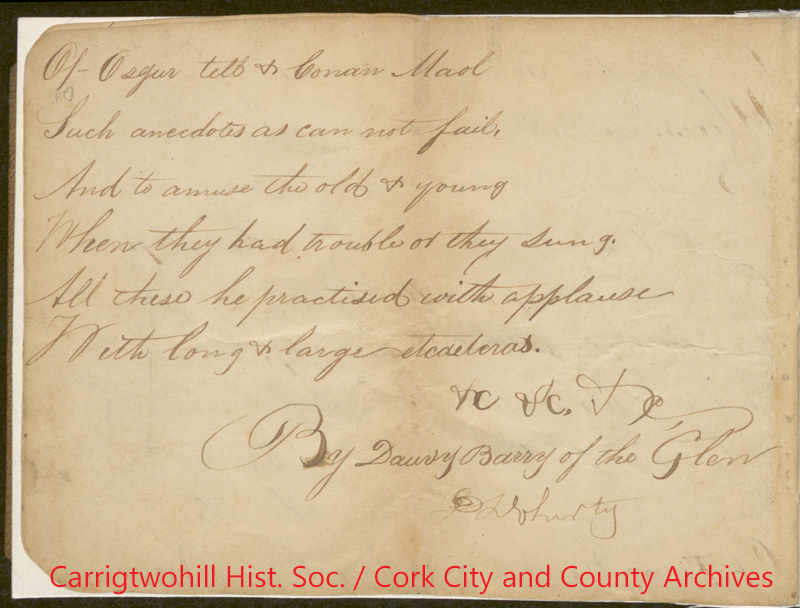 Of Osgur tell & Conan Maol
Such anecdotes as can not fail,
And to amuse the old & young
When they had trouble or they sung.
All these he practised with applause
With long & large etcaeteras.
&c &c. &c
By Dauvy Barry of the Glen
Doherty
Carrigtwohill Hist. Soc. / Cork City and County Archives